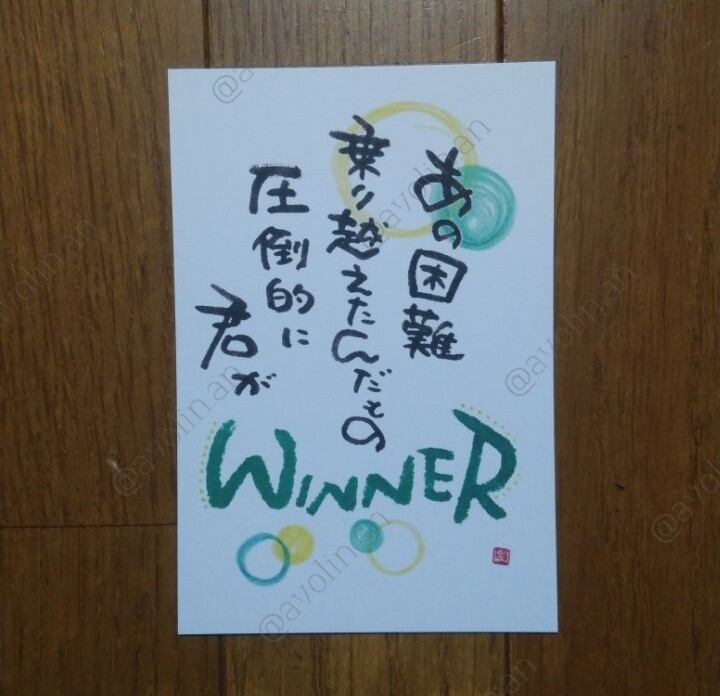 あの困難
乗り越えたんだもの
圧倒的に
君が
WINNER
@avolin.an
@avolin.an
@avolin.an
@avolin.an
@avolin.an
@avolin.an
@avolin.an